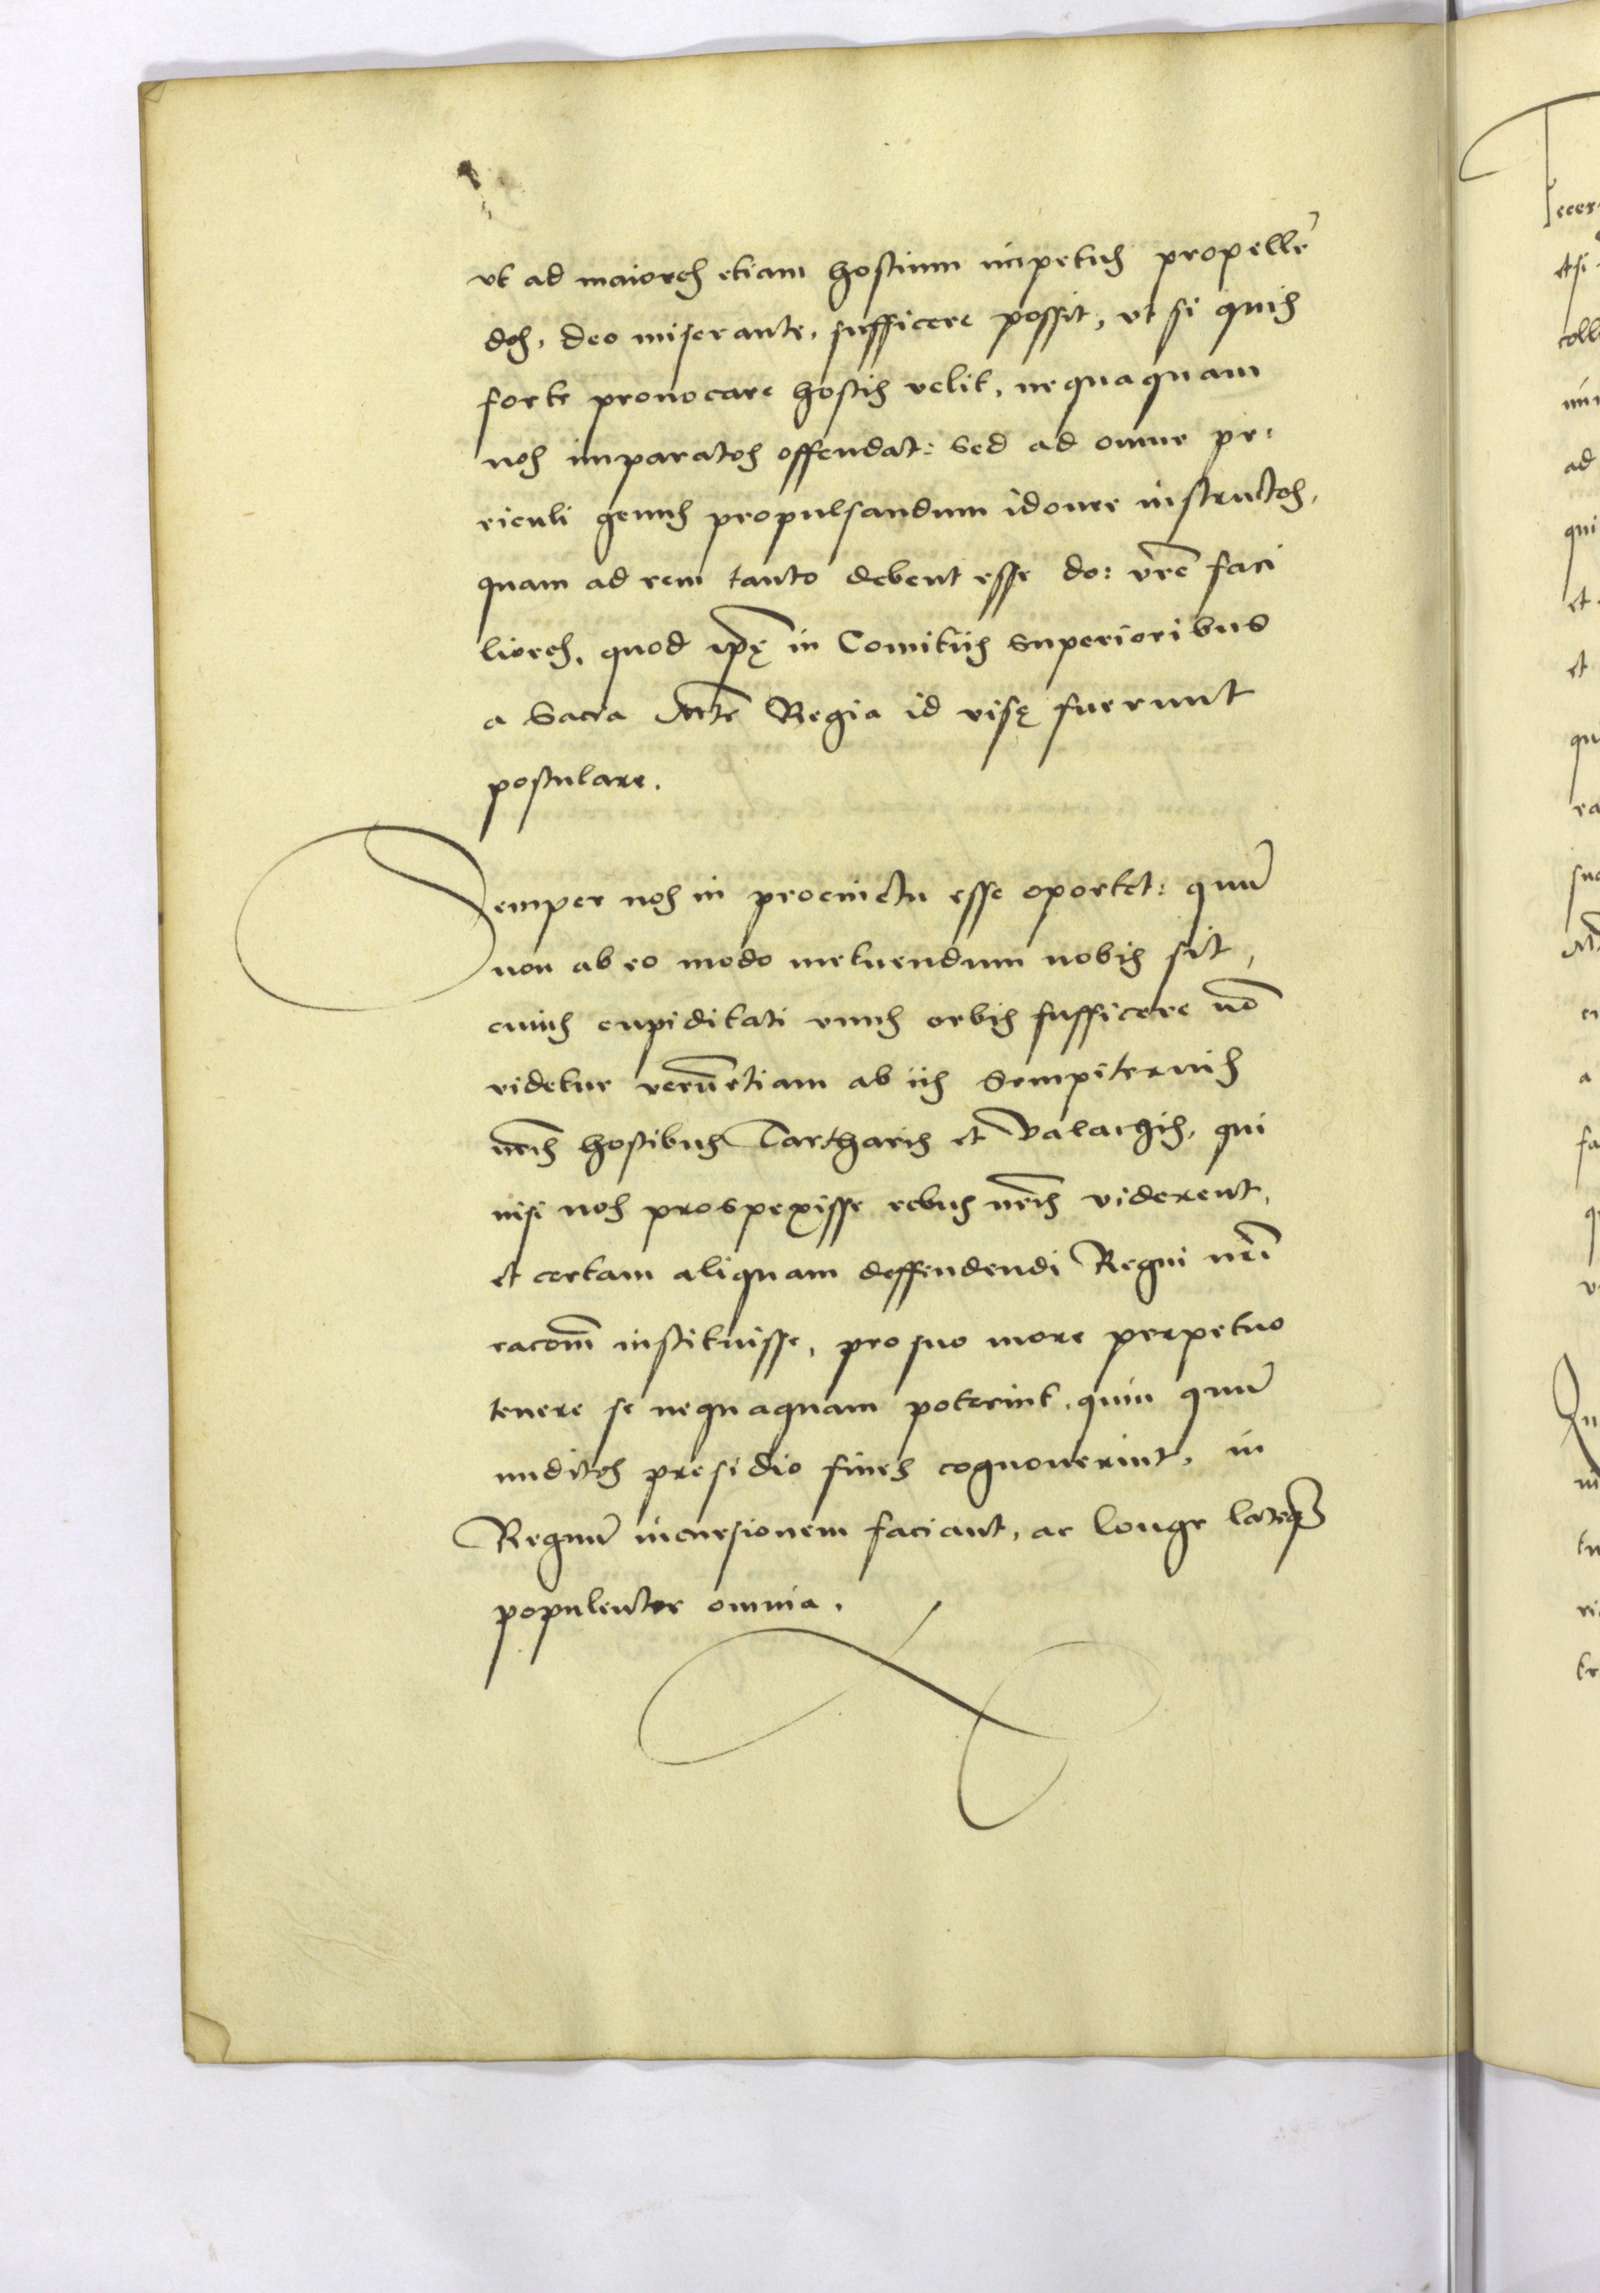 vt ad maiores etiam hostium impetus propellē
dos, deo miserante, sufficere possit, vt si quis
forte prouocare hostis velit, nequaquam
nos imparatos offendat: sed ad omne pe:
riculi genus propulsandum idonee instructos,
quam ad rem tanto debent esse do: vrē faci
liores, quod ipę in Comitiis superioribus
a Sacra Mte Regia id visę fuerunt
postulare.
Semper nos in procinctu esse oportet: quū
non ab eo modo metuendum nobis sit,
cuius cupiditati vnus orbis sufficere nō
videtur verūetiam ab iis sempiternis
nrīs hostibus Tartharis et Valachis, qui
nisi nos prospexisse rebus nrīs viderent,
et certam aliquam deffendendi Regni nrī
racom̄ instituisse, pro suo more perpetuo
tenere se nequaquam poterint, quin quū
nuditos presidio fines cognouerint, in
Regnū incursionem faciant, ac longe lateqȝ
populentur omnia.
ecer
etsi
coll
ad
qui
et
et
qu
ra
suo
a
fa
Qu
tu